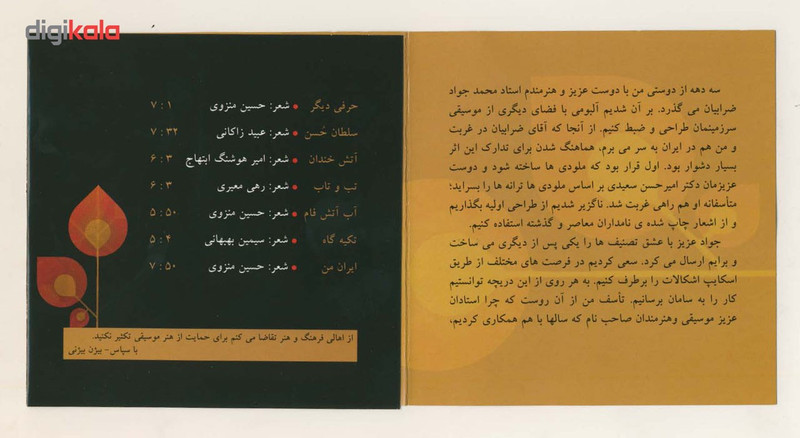 digikala
سه دهه از دوستی من با دوست عزیز و هنرمندم استاد محمد جواد
ضرابیان می گذرد. بر آن شدیم آلبومی با فضای دیگری از موسیقی
سرزمینمان طراحی و ضبط کنیم. از آنجا که آقای ضرابیان در غربت
و من هم در ایران به سر می برم، هماهنگ شدن برای تدارک این اثر
بسیار دشوار بود. اول قرار بود که ملودی ها ساخته شود و دوست
عزیزمان دکتر امیرحسن سعیدی بر اساس ملودی ها ترانه ها را بسراید؛
متأسفانه او هم راهی غربت شد. ناگزیر شدیم از طراحی اولیه بگذاریم
و از اشعار چاپ شده ی نامداران معاصر و گذشته استفاده کنیم.
جواد عزیز با عشق تصنیف ها را یکی پس از دیگری می ساخت
و برایم ارسال می کرد. سعی کردیم در فرصت های مختلف از طریق
اسکایپ اشکالات را برطرف کنیم. به هر روی از این دریچه توانستیم
کار را به سامان برسانیم. تأسف من از آن روست که چرا استادان
عزیز موسیقی وهنرمندان صاحب نام که سالها با هم همکاری کردیم،
حرفی دیگر • شعر: حسین منزوی ۷ : ۱
سلطان حُسن • شعر: عبید زاکانی ۷ : ۳۲
آتش خندان • شعر: امیر هوشنگ ابتهاج ۶ : ۳
تب و تاب • شعر: رهی معیری ۶ : ۳
آب آتش فام • شعر: حسین منزوی ۵ : ۵۰
تکیه گاه • شعر: سیمین بهبهانی ۵ : ۴
ایران من • شعر: حسین منزوی ۷ : ۵۰
از اهالی فرهنگ و هنر تقاضا می کنم برای حمایت از هنر موسیقی تکثیر نکنید.
با سپاس- بیژن بیژنی